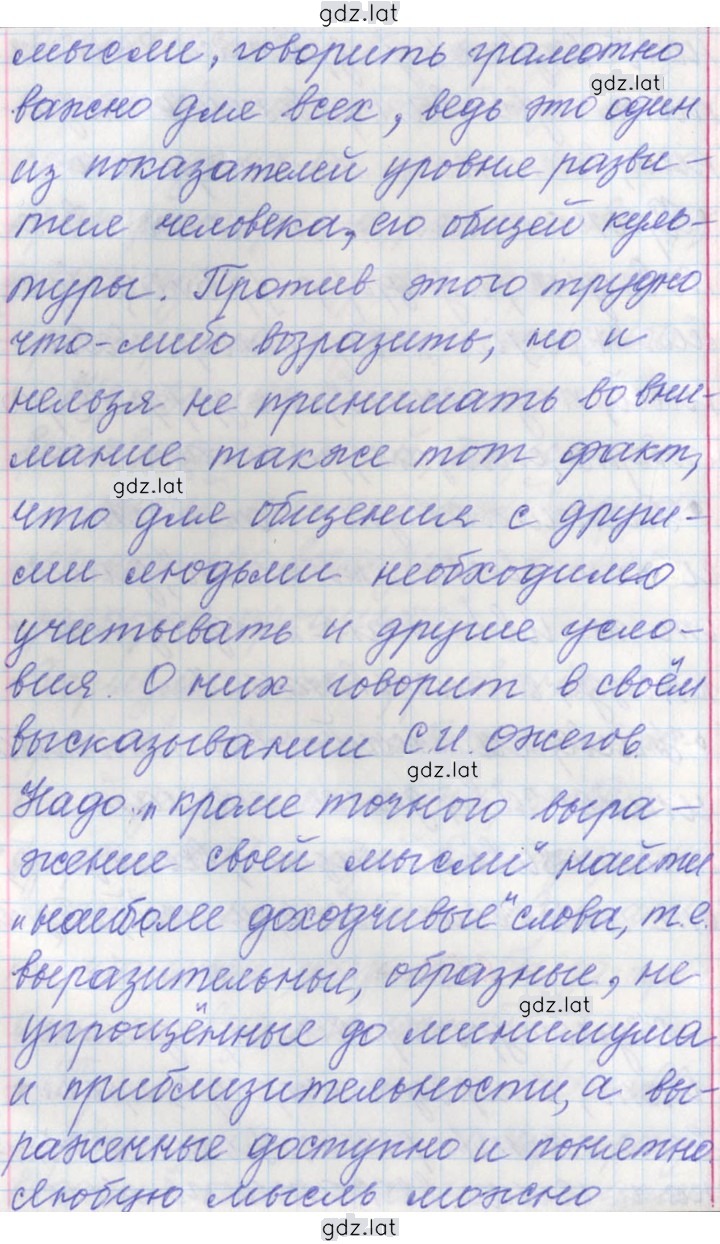 gdz.lat
мысли, говорить грамотно
gdz.lat
важно для всех, ведь это один
из показателей уровня разви-
тия человека, его общей куль-
туры. Против этого трудно
что-либо возразить, но и
нельзя не принимать во вни-
мание также тот факт,
gdz.lat
что для общения с други-
ми людьми необходимо
учитывать и другие усло-
вия. О них говорит в своём
высказывании С.И. Ожегов.
gdz.lat
Надо „кроме точного выра-
жение своей мысли“ найти
„наиболее доходчивые“ слова, т.е.
выразительные, образные, не
gdz.lat
упрощённые до минимума
и приблизительности, а вы-
раженные доступно и понятно.
Любую мысль можно
gdz.lat